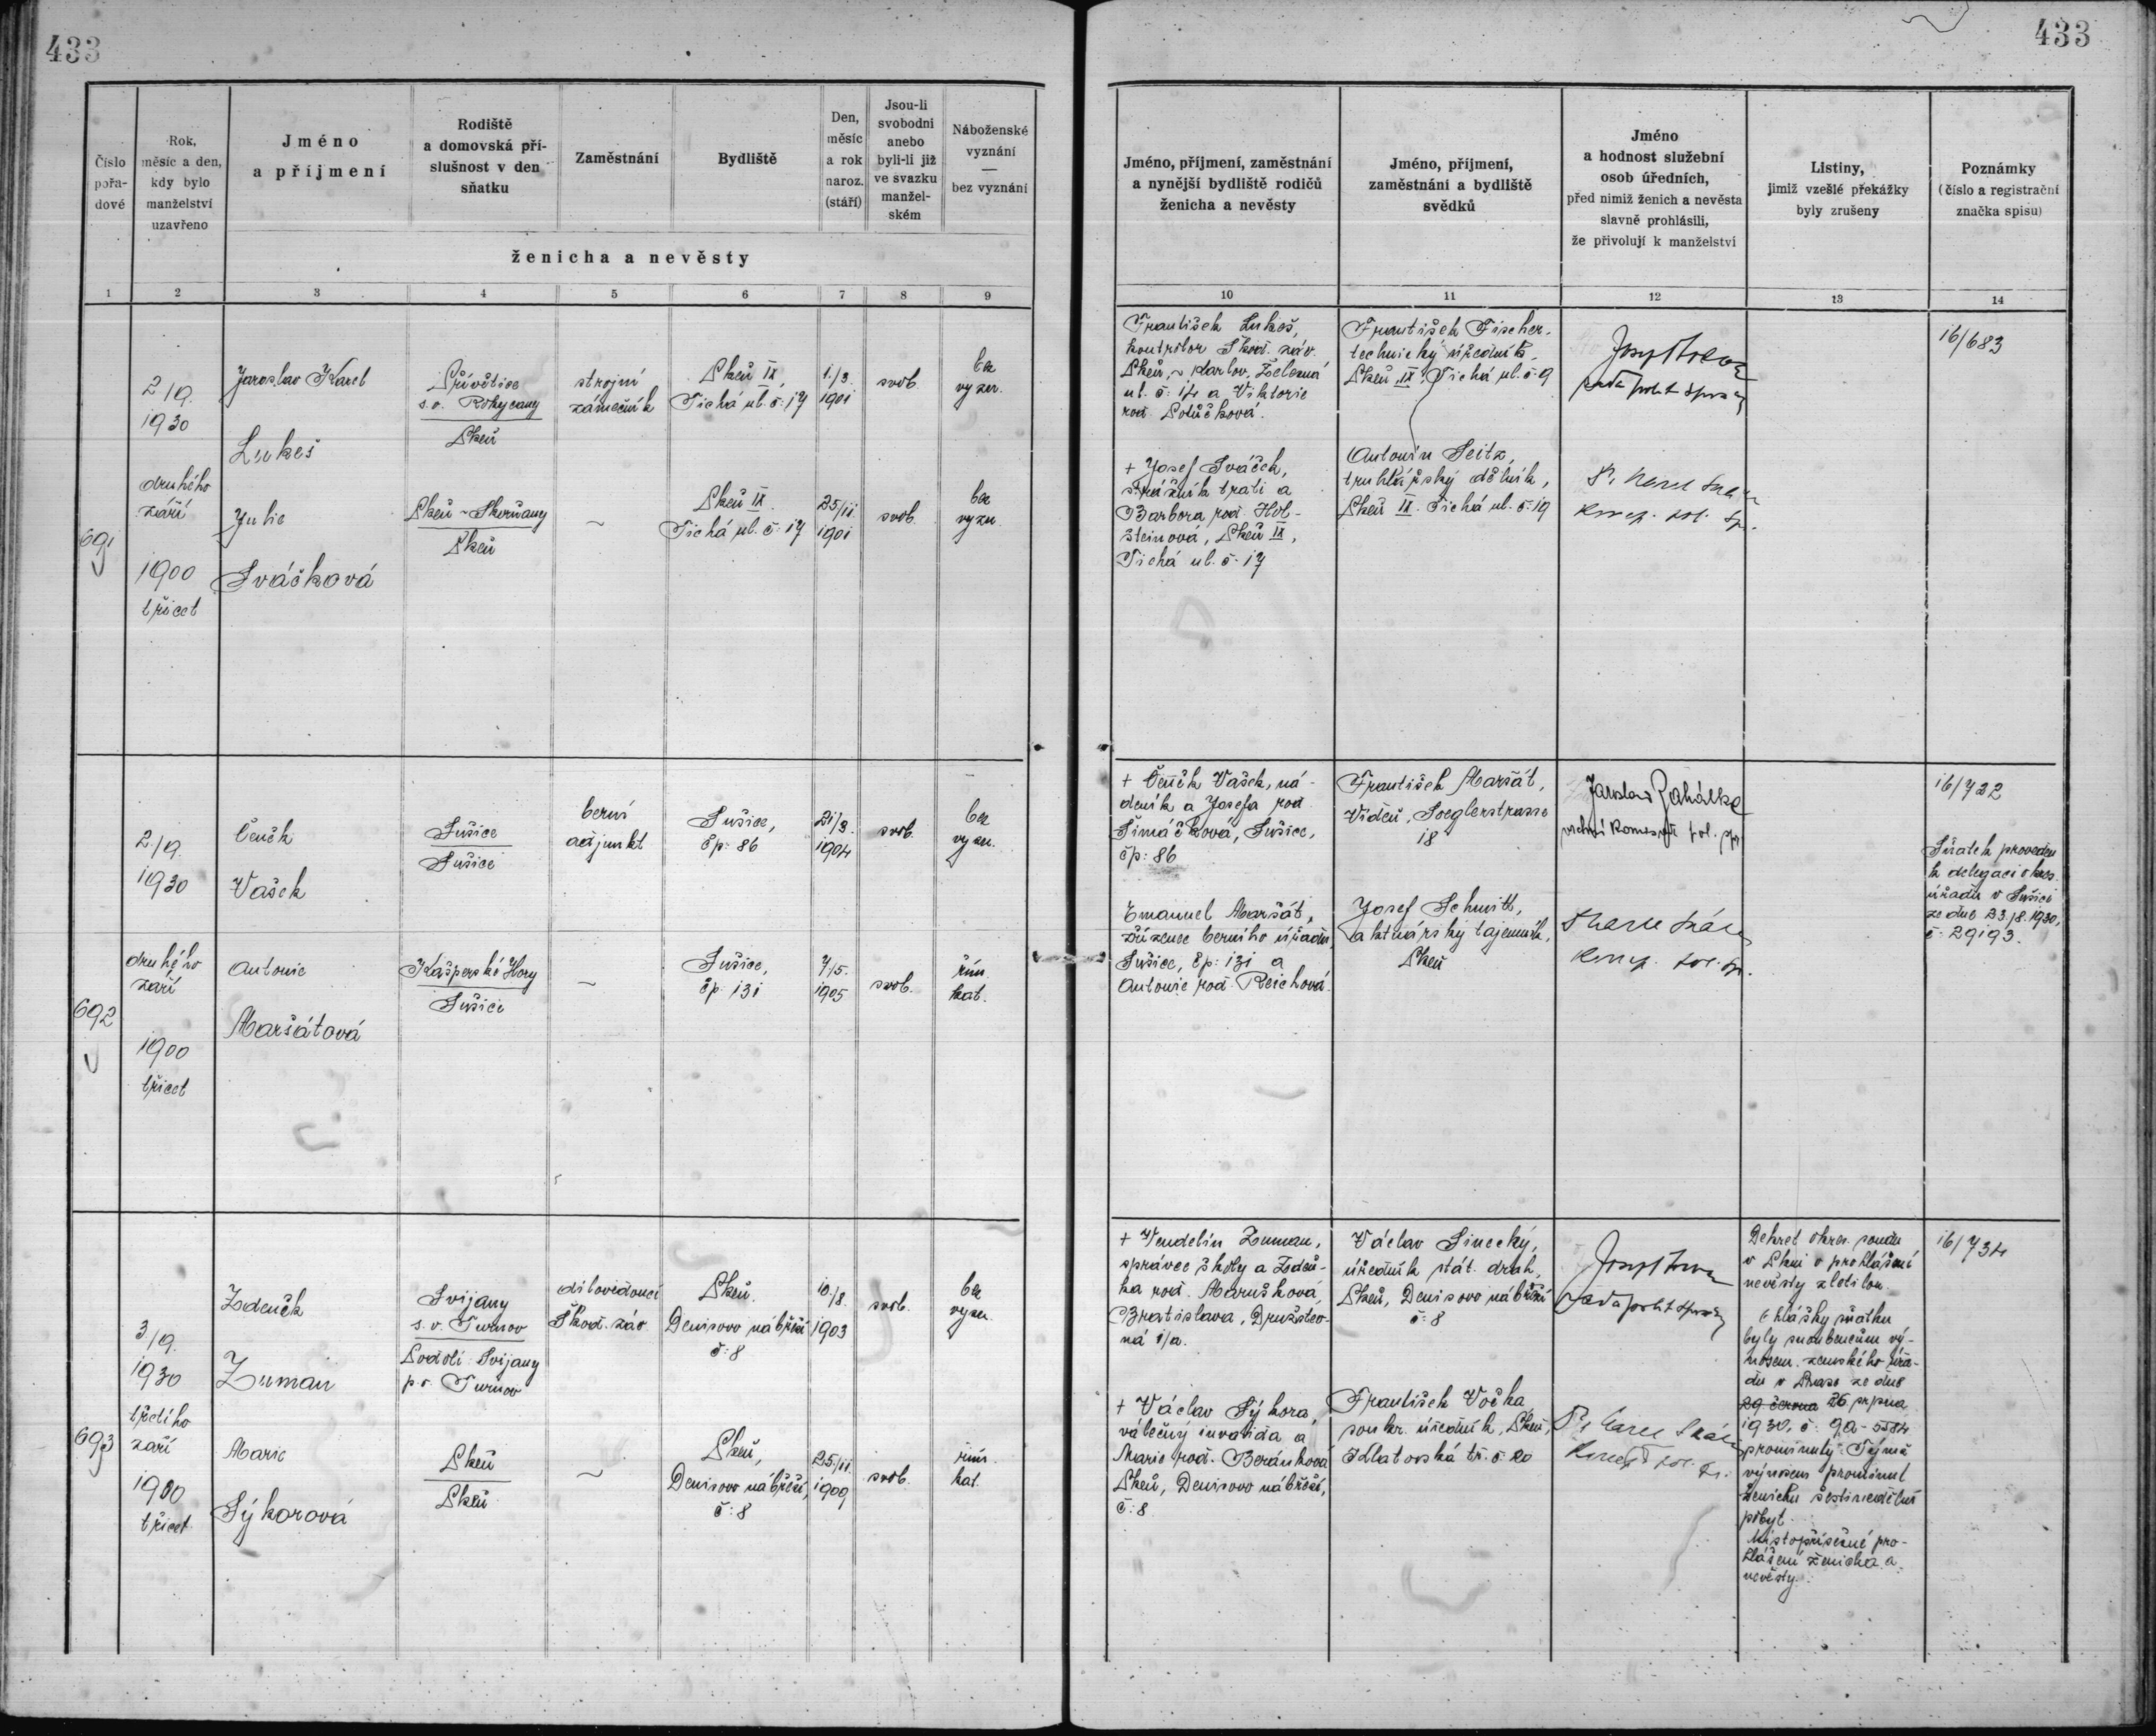 433
433
Číslo
pořa-
dové
Rok,
měsíc a den,
kdy bylo
manželství
uzavřeno
Jméno
a příjmení
Rodiště
a domovská pří-
slušnost v den
sňatku
Zaměstnání
Bydliště
Den,
měsíc
a rok
naroz.
(stáří)
Jsou-li
svobodni
anebo
byli-li již
ve svazku
manžel-
ském
Náboženské
vyznání
—
bez vyznání
ženicha a nevěsty
1 2 3 4 5 6 7 8 9
Jméno, příjmení, zaměstnání
a nynější bydliště rodičů
ženicha a nevěsty
Jméno, příjmení,
zaměstnání a bydliště
svědků
Jméno
a hodnost služební
osob úředních,
před nimiž ženich a nevěsta
slavně prohlásili,
že přivolují k manželství
Listiny,
jimiž vzešlé překážky
byly zrušeny
Poznámky
(číslo a registrační
značka spisu)
10 11 12 13 14
691
2/9.
1930
druhého
září
1900
třicet
Jaroslav Karel
Lukeš
Přívětice
s.o. Rokycany
Plzeň
strojní
zámečník
Plzeň IX,
Tichá ul. č: 17
1./3.
1901
svob.
bez
vyzn.
Julie
Sváčková
Plzeň - Skvrňany
Plzeň
~
Plzeň IX.
Tichá ul. č: 17
25/11
1901
svob.
bez
vyzn.
František Lukeš,
kontrolor Škod. záv.
Plzeň, - Karlov, Zelená
ul. č: 14 a Viktorie
rod.
+ Josef Sváček,
strážník trati a
Barbora rod. Hol-
šteinová, Plzeň IX,
Tichá ul. č: 17
František Fischer,
technický úředník,
Plzeň IX, Tichá ul. č: 9
Antonín Seitz,
truhlářský dělník,
Plzeň IX. Tichá ul. č: 19
Josef
rada polit. správy
koncip. pol. spr.
16/683
692
2./9.
1930
druhého
září
1900
třicet
Čeněk
Vašek
Sušice
Sušice
berní
adjunkt
Sušice,
čp: 86
21/3.
1904
svob.
bez
vyzn.
Antonie
Maršátová
Kašperské Hory
Sušice
~
Sušice,
čp. 131
7/5.
1905
svob.
řím.
kat.
+ Čeněk Vašek, ná-
deník a Josefa rod.
Šimáčková, Sušice,
čp: 86
Emanuel Maršát,
zřízenec berního úřadu,
Sušice, čp: 131 a
Antonie rod. Reichová.
František Maršát,
Vídeň, Soeglerstrasse
18
Josef Schmitt,
aktuárský tajemník,
Plzeň
Jaroslav Zahálka
vrchní komisař pol. spr.
koncip. pol. spr.
16/722
Sňatek proveden
k delegaci okres.
úřadu v Sušici
ze dne 23./8.1930,
č. 29193.
693
3/9.
1930
třetího
září
1900
třicet
Zdeněk
Zuman
Svijany
s.o. Turnov
Podolí Svijany
p.o. Turnov
dílovedoucí
Škod. záv.
Plzeň.
Denisovo nábřeží
č: 8
10./8.
1903
svob.
bez
vyzn.
Marie
Sýkorová
Plzeň
Plzeň
~
Plzeň,
Denisovo nábřeží,
č: 8
25/11.
1909
svob.
řím.
kat.
+ Vendelín Zuman,
správce školy a Zdeň-
ka rod. Marušková,
Bratislava, Družstev-
ná 1/a.
+ Václav Sýkora,
válečný invalida a
Marie rod. Beránková
Plzeň, Denisovo nábřeží,
č: 8
Václav Sinecký,
úředník stát. drah,
Plzeň, Denisovo nábřeží
č: 8
František Vočka,
soukr. úředník, Plzeň,
Klatovská tř. č: 20
Josef
rada polit. správy
koncip. pol. spr.
Dekret okres. soudu
v Plzni o prohlášení
nevěsty zletilou.
Ohlášky sňatku
byly snoubencům vý-
nosem zemského úřa-
du v Praze ze dne
29 června 26 srpna
1930, č: 9a-5584
prominuty. Týmž
výnosem prominut
ženichu šestinedělní
pobyt.
Místopřísežné pro-
hlášení ženicha a
nevěsty.
16/734